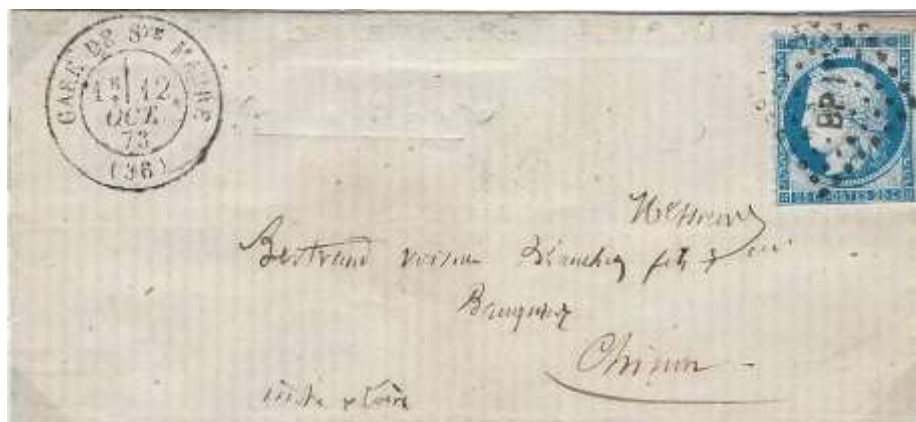 GARE DE STE MAURE
1E 12
OCT.
73
(36)
BP
Messieurs
Bertrand
fils &
Banquiers
Chinon
Indre & Loire